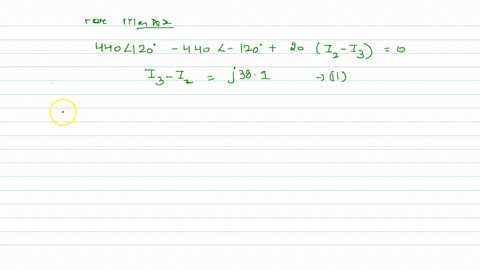 For Mesh2
440∠120° - 440∠-120° + 20 (I₂-I₃) = 0
I₃-I₂ = j38.1 →(1)